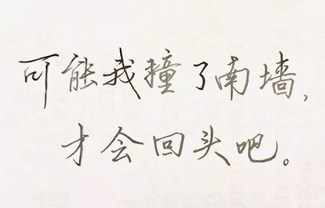 可能我撞了南墙,
才会回头吧。